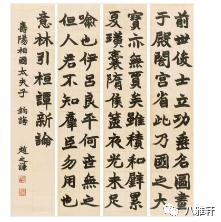 前世俊士立功垂名圖畫
于殿閣宮省此乃國之大
寶亦無價矣雖積和璧累
夏璜囊隋侯篋夜光未足
喻也伊呂良平何世無之
但人君不知羣臣勿用也
意林引桓譚新論
壽陽相國太夫子 鈞誨 趙之謙
八雅轩